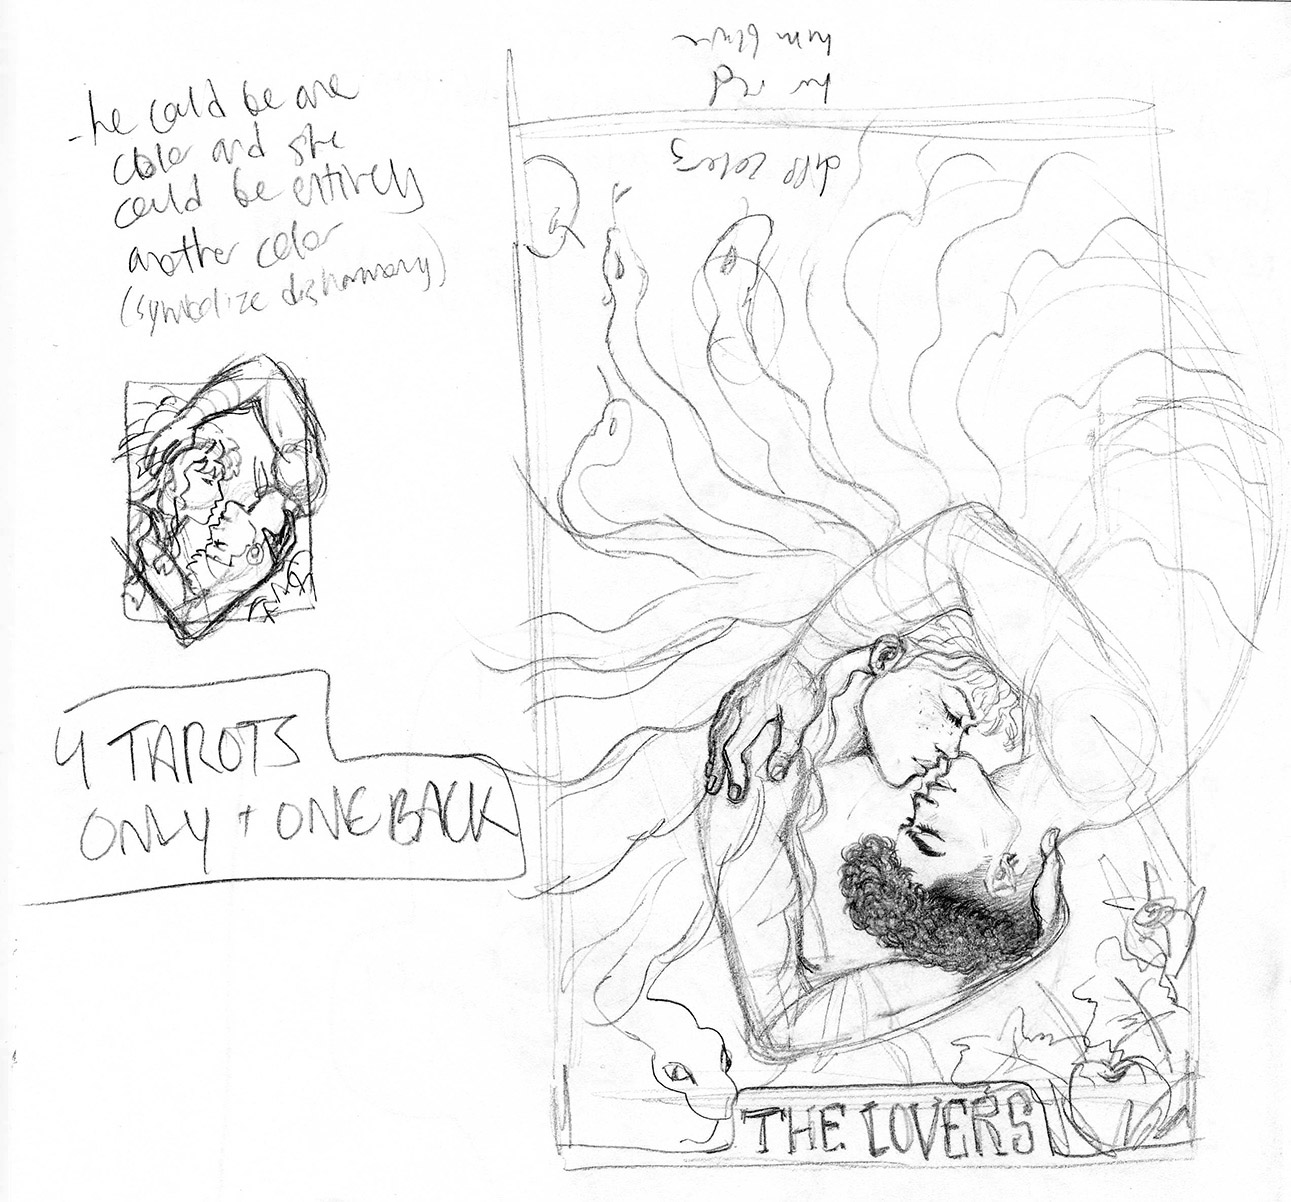 -he could be one
color and she
could be entirely
another color
(symbolize disharmony)
4 TAROTS
ONLY + ONE BACK
diff colors
her red
him blue
THE LOVERS